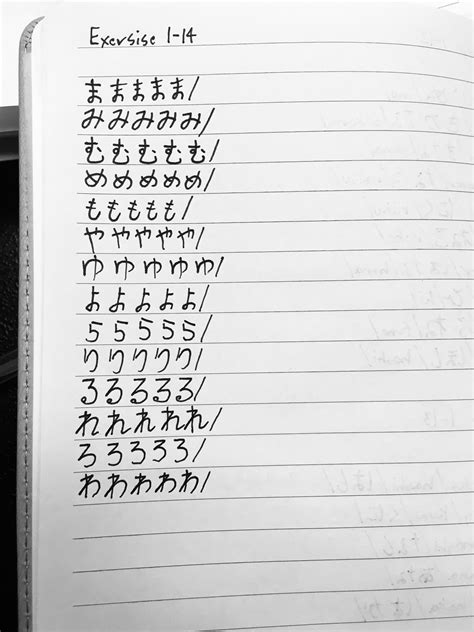 Exersise 1-14
まままままま/
みみみみみ/
むむむむむ/
めめめめめ/
ももももも/
ややややや/
ゆゆゆゆゆ/
よよよよよ/
ららららら/
りりりりり/
るるるるる/
れれれれれ/
ろろろろろ/
わわわわわ/